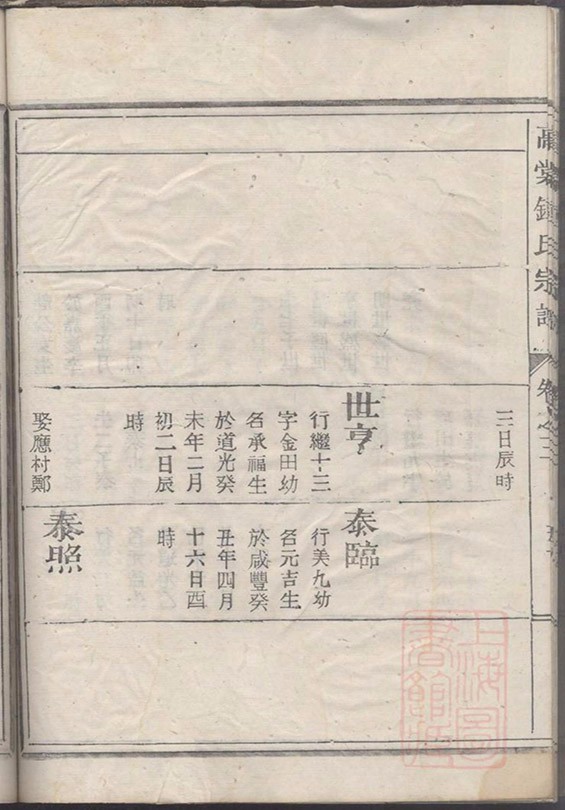 鍾氏宗譜
卷之三
三日辰時
世亨
行繼十三
字金田幼
名承福生
於道光癸
未年二月
初二日辰
時
娶應村鄭
泰臨
行美九幼
名元吉生
於咸豐癸
丑年四月
十六日酉
時
泰照
上海圖書館藏